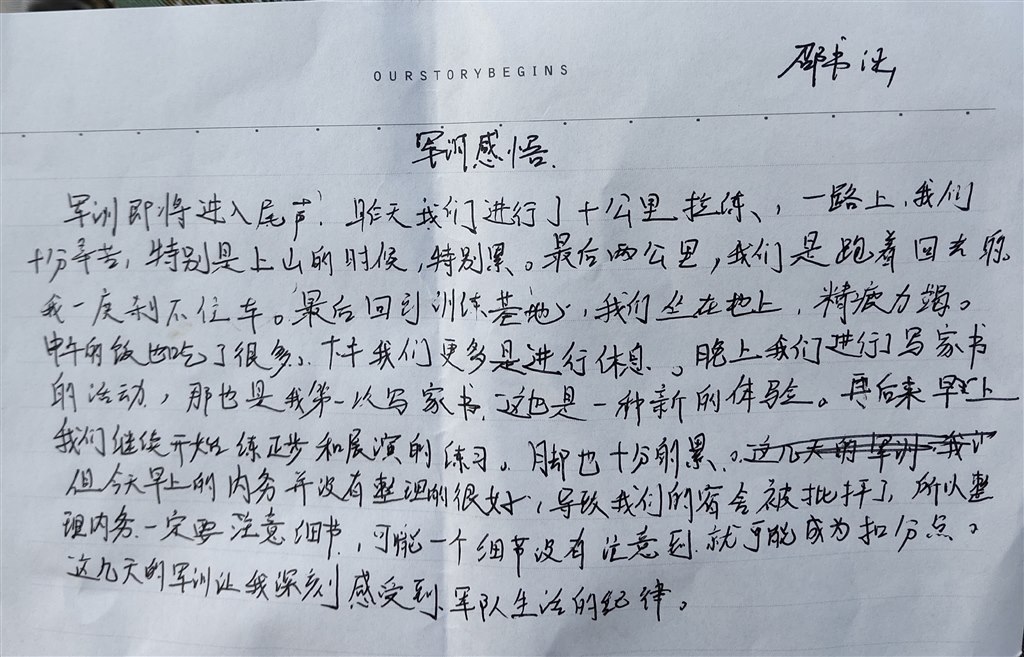 OURSTORYBEGINS
邵书
军训感悟.
军训即将进入尾声,昨天我们进行了十公里拉练,一路上,我们
十分辛苦,特别是上山的时候,特别累。最后两公里,我们是跑着回去的。
我一度刹不住车。最后回到训练基地,我们坐在地上,精疲力竭。
中午的饭也吃了很多。下午我们更多是进行休息。晚上我们进行了写家书
的活动,那也是我第一次写家书,这也是一种新的体验。再后来早上
我们继续开始练正步和展演的练习。脚也十分的累。这几天的军训 我
但今天早上的内务并没有整理的很好,导致我们的宿舍被批评了,所以整
理内务一定要注意细节,可能一个细节没有注意到就可能成为扣分点。
这几天的军训让我深刻感受到军队生活的纪律。